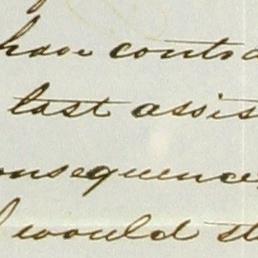 have conto
last assis
onsequence,
I would st